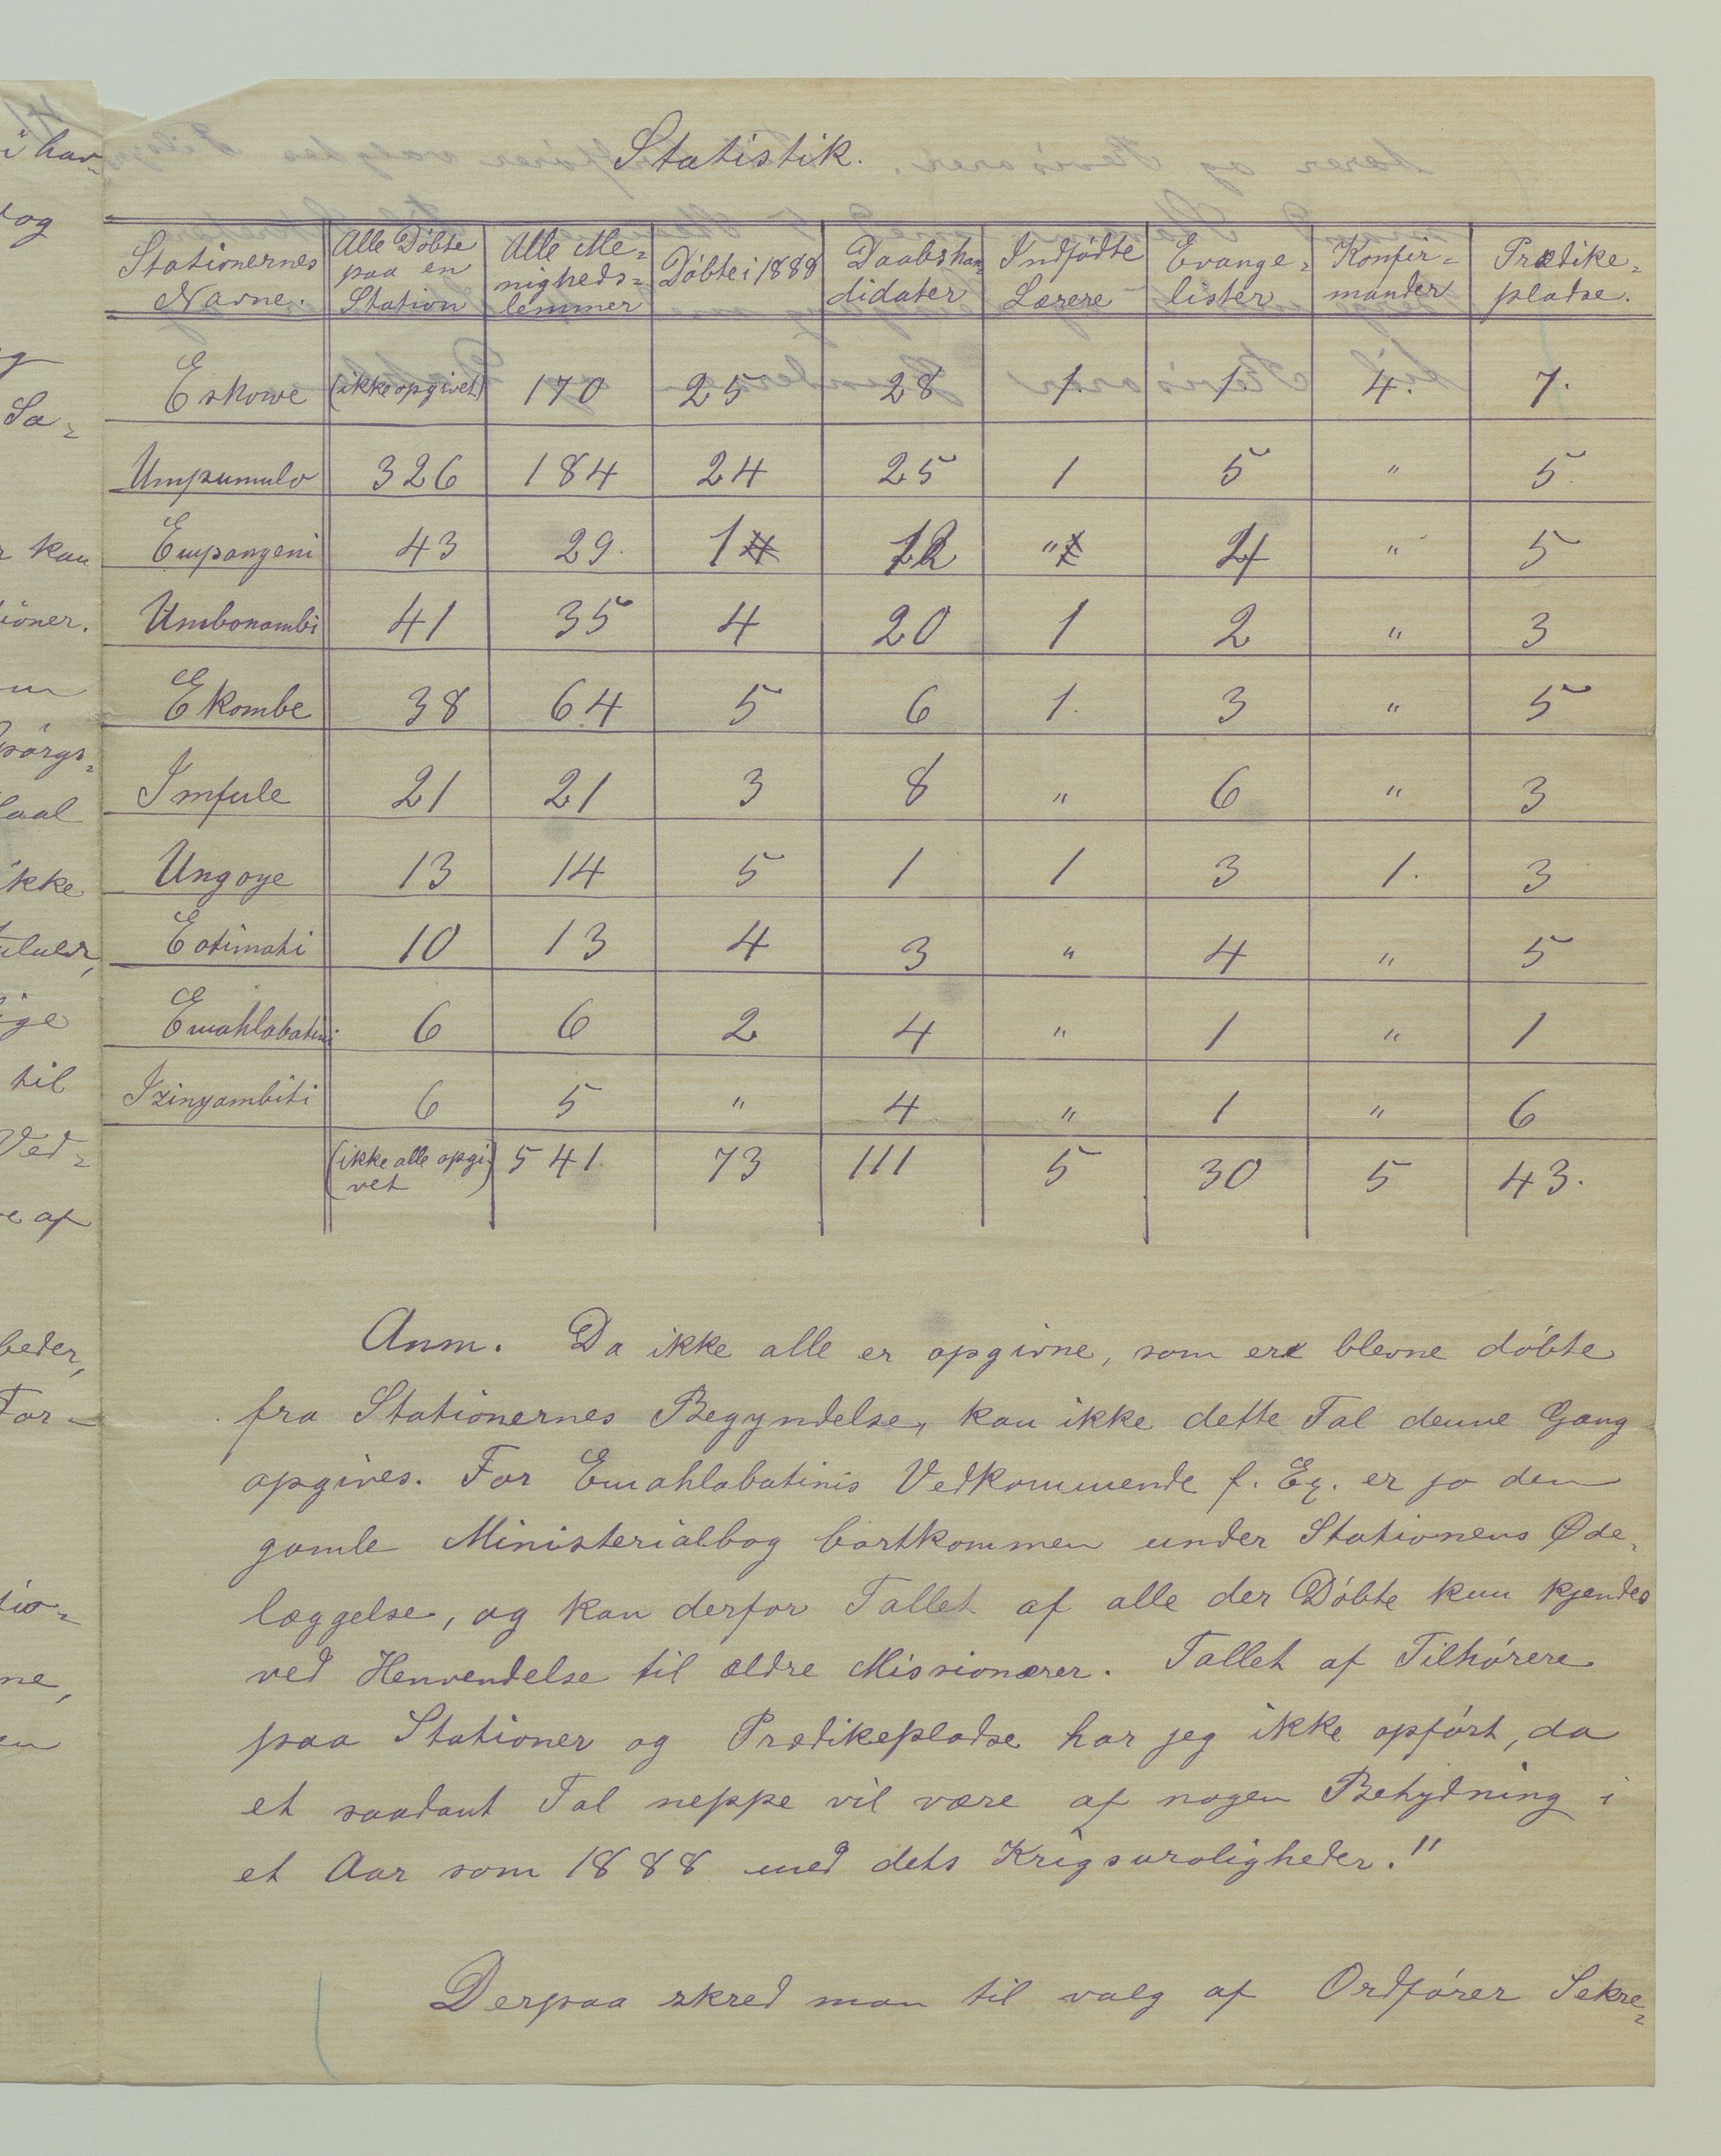 Statistik.
Stationernes Navne. | Alle Döbte paa en Station | Alle Me- nigheds- lemmer | Döbte i 1888 | Daabskan- didater | Indfödte Lærere | Evange- lister | Konfir- mander | Prædike- pladse.
Eskowe | (ikke opgivet) | 170 | 25 | 28 | 1. | 1 | 4. | 7.
Umpumulo | 326 | 184 | 24 | 25 | 1 | 5 | " | 5.
Empangeni | 43 | 29. | 1 | 12 | " | 4 | " | 5
Umbonambi | 41 | 35 | 4 | 20 | 1 | 2 | " | 3
Ekombe | 38 | 64 | 5 | 6 | 1. | 3 | " | 5
Imfule | 21 | 21 | 3 | 8 | " | 6 | " | 3
Ungoye | 13 | 14 | 5 | 1 | 1 | 3 | 1. | 3
Eotimati | 10 | 13 | 4 | 3 | " | 4 | " | 5
Emahlabatini | 6 | 6 | 2 | 4 | " | 1 | " | 1
Izinyambiti | 6 | 5 | " | 4 | " | 1 | " | 6
(ikke alle opgi- vet) | 541. | 73 | 111 | 5 | 30 | 5 | 43.
Anm. Da ikke alle er opgivne, som er blevne döbte
fra Stationernes Begyndelse, kan ikke dette Tal denne Gang
opgives. For Emahlabatinis Vedkommende f. Ex. er jo den
gamle Ministerialbog bortkommen under Stationens Øde-
læggelse, og kan derfor Tallet af alle der Döbte kun kjendes
ved Henvendelse til ældre Missionærer. Tallet af Tilhörere
paa Stationer og Prædikepladse har jeg ikke opfört, da
et saadant Tal neppe vil være af nogen Betydning i
et Aar som 1888 med dets Krigsuroligheder."
Derpaa skred man til valg af Ordförer Sekre-